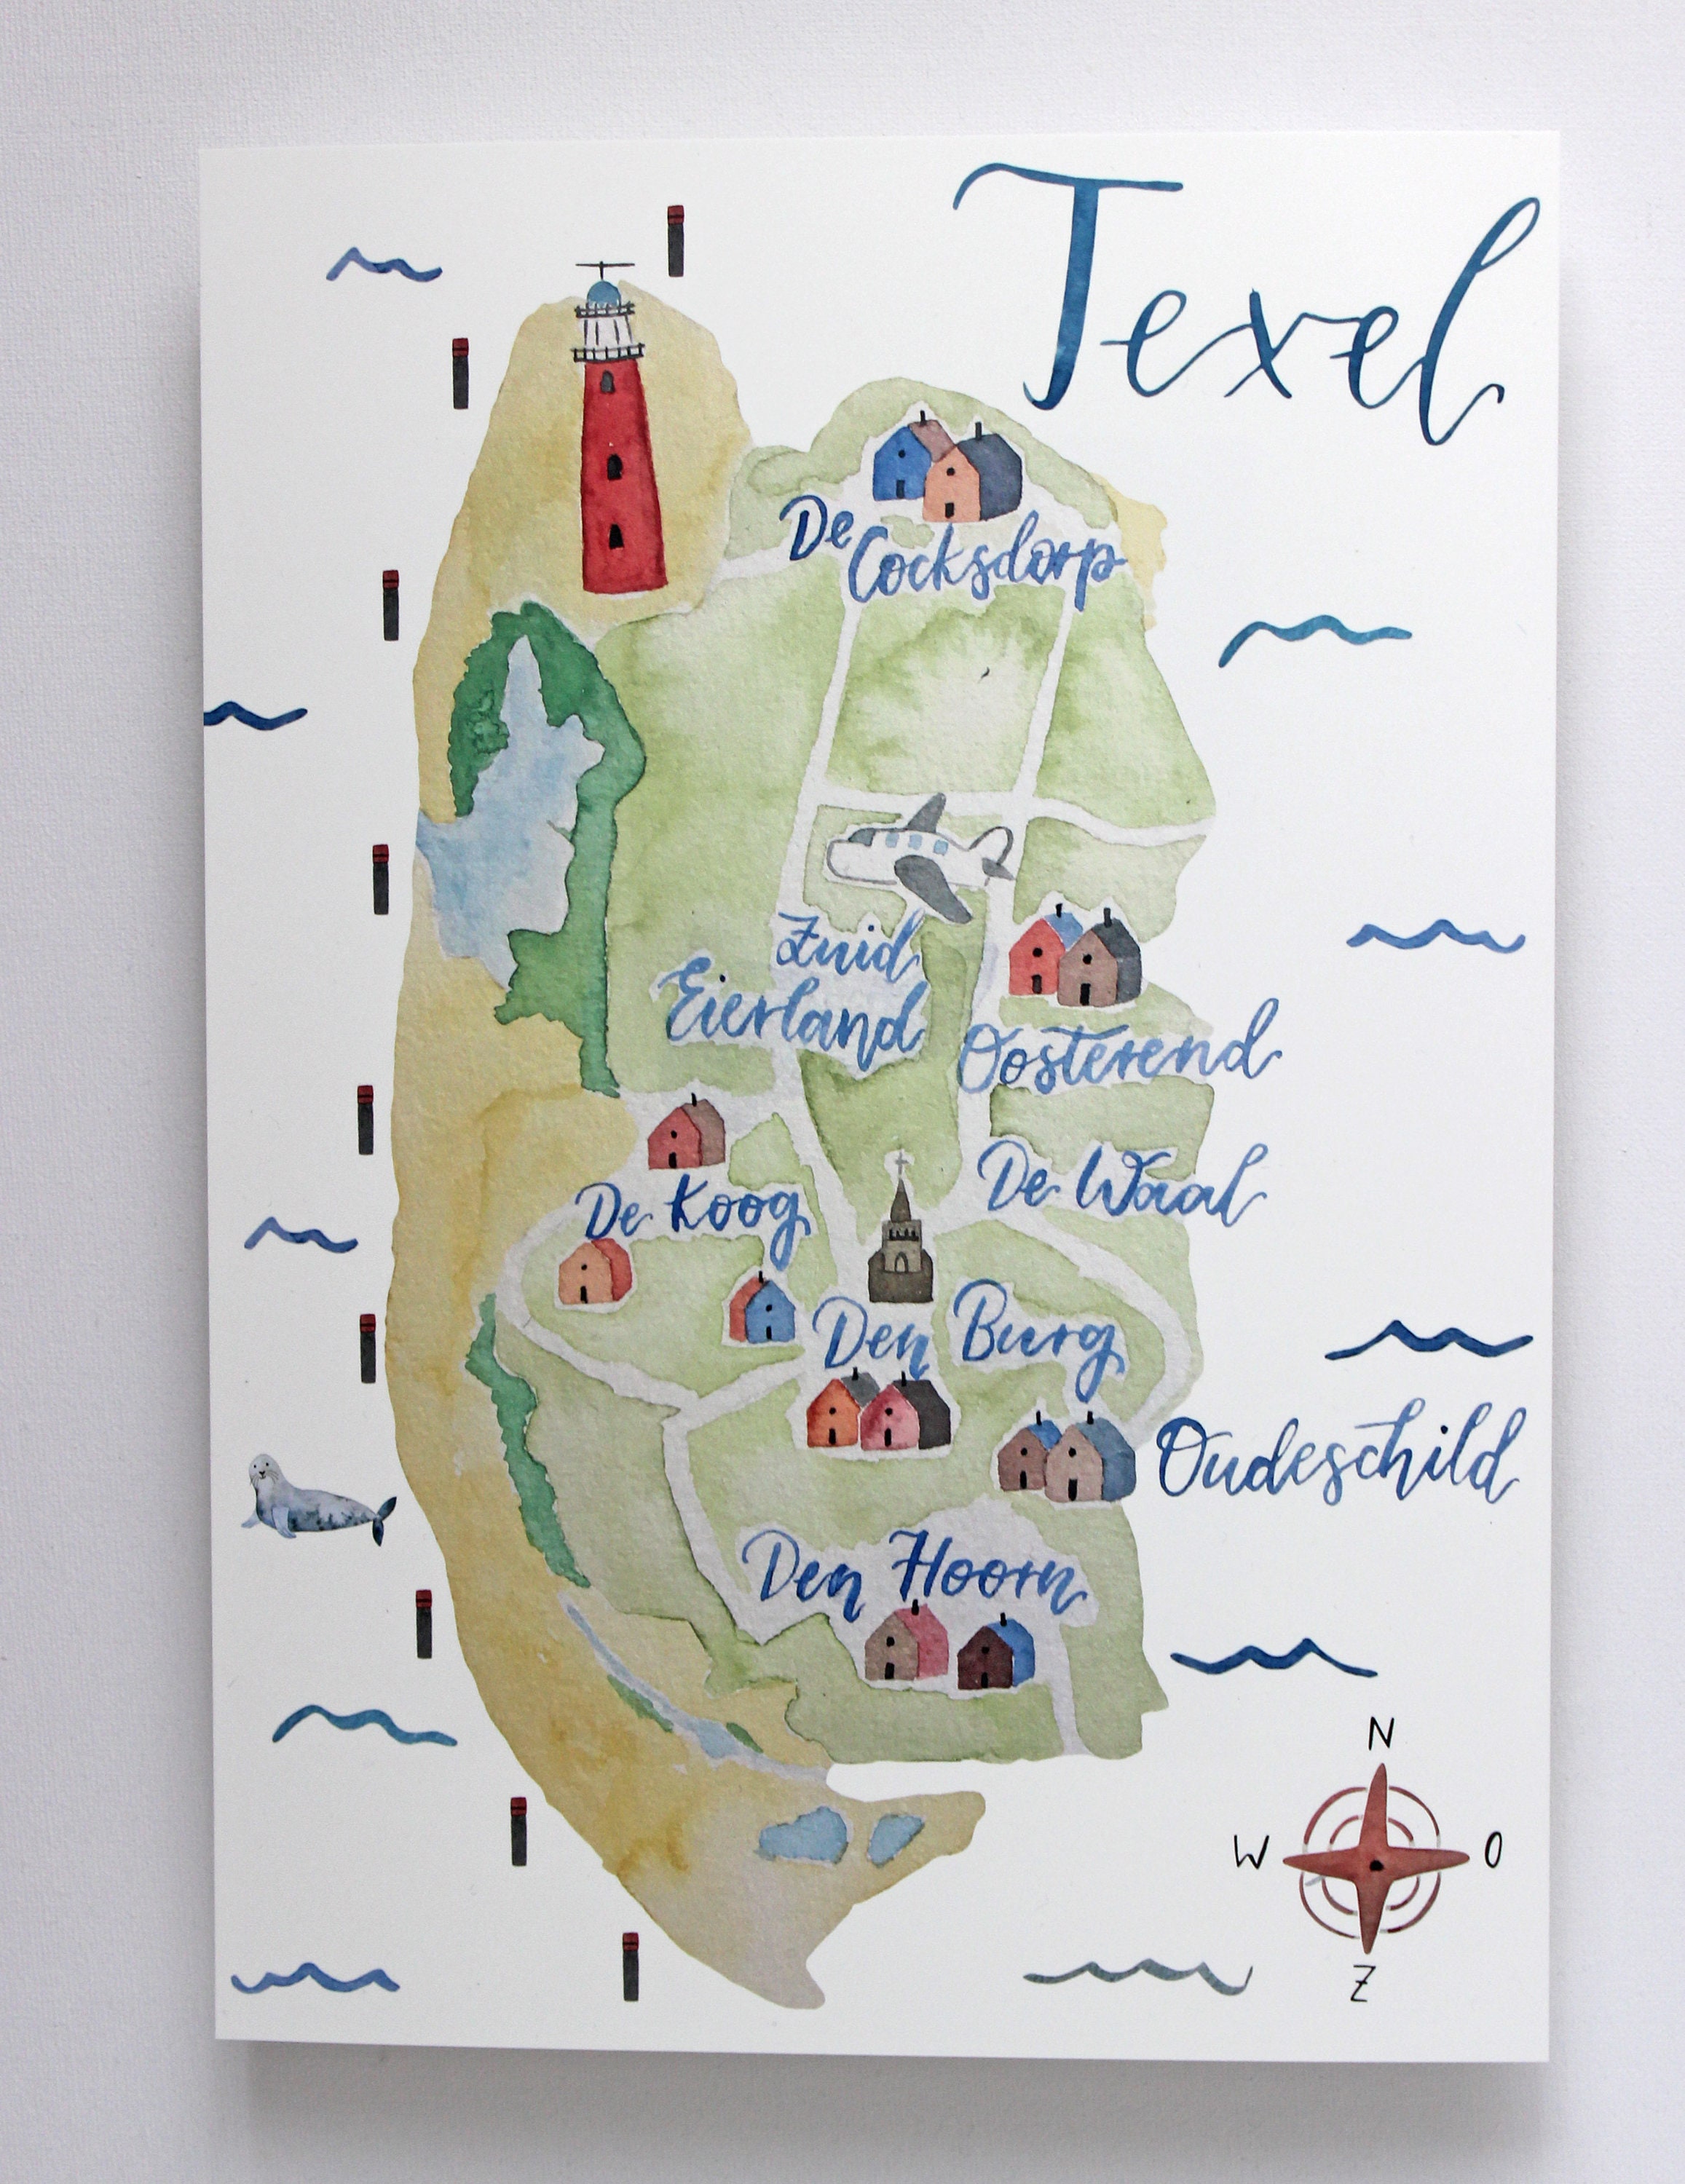 Texel
De
Cocksdorp
Zuid
Eierland
Oosterend
De Koog
De Waal
Den Burg
Oudeschild
Den Hoorn
N
W O
Z